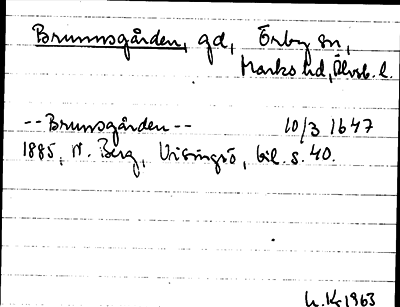 Brunnsgården, gd, Örby sn,
Marks hd, Älvsb. l.
--Brunsgården-- 10/3 1647
1885, N. Berg, Visingsö, bil. s. 40.
h. Kr 1963